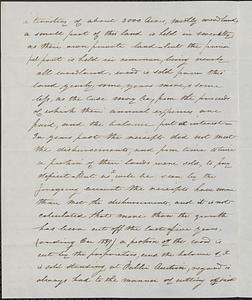 a territory of about 2000 acres, mostly woodland,
a small part of this land is held in severalty,
as their own private land – but the princi
pal part is held in common, being nearly
all woodland. wood is sold from this
land yearly, some years more, & some
less, as the case may be, from the proceeds
of which their annual expenses are
paid, and the balance put at interest –
In years past the receipts did not meet
the disbursements, and from time to time
a portion of their lands were sold, to pay
deficit. But as will be seen by the
foregoing account the receipts have more
than met the disbursements, and it is not
calculated that more than the growth
has been cut off the last five years,
(ending Dec 1857) a portion of the wood is
cut by the proprietors and the balance of it
is sold standing at Public Auction, regard is
always had to the manner of cutting off said